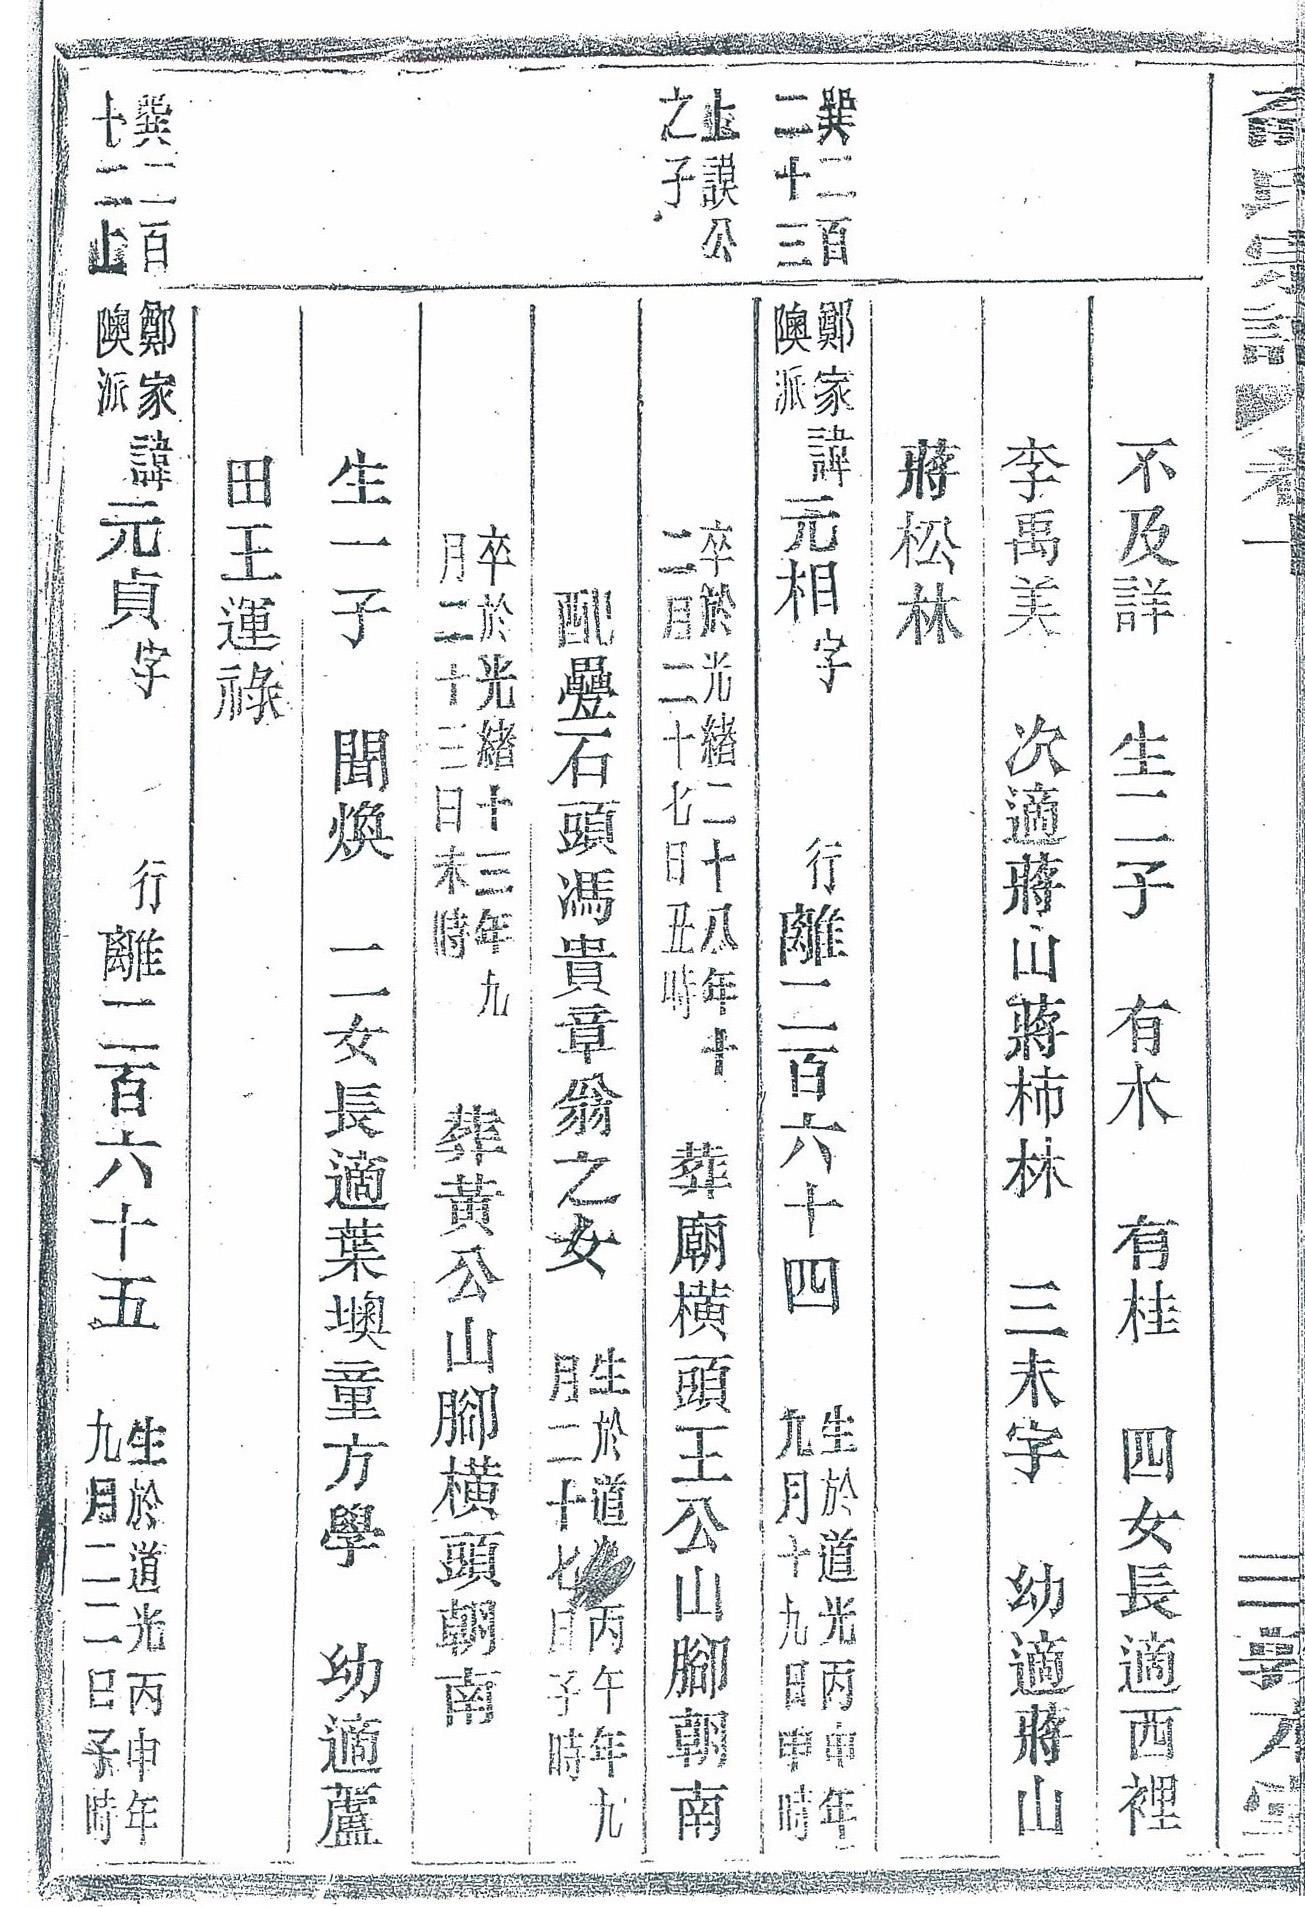 不及詳 生二子 有木 有桂 四女長適西裡
李禹美 次適蔣山蔣柿林 三未字 幼適蔣山
蔣松林
巽二百
二十三
止謨公
之子
鄭家
隩派
諱元相字 行離二百六十四 生於道光丙申年
九月十九日申時
卒於光緒二十八年十
二月二十七日丑時 葬廟橫頭王公山腳朝南
配疊石頭馮貴章翁之女 生於道光丙午年九
月二十七日子時
卒於光緒十三年九
月二十三日未時 葬黃公山腳橫頭朝南
生一子 聞煥 二女長適葉墺童方學 幼適蘆
田王運祿
巽二百
十二止
鄭家
隩派
諱元貞字 行離二百六十五 生於道光丙申年
九月二二日子時